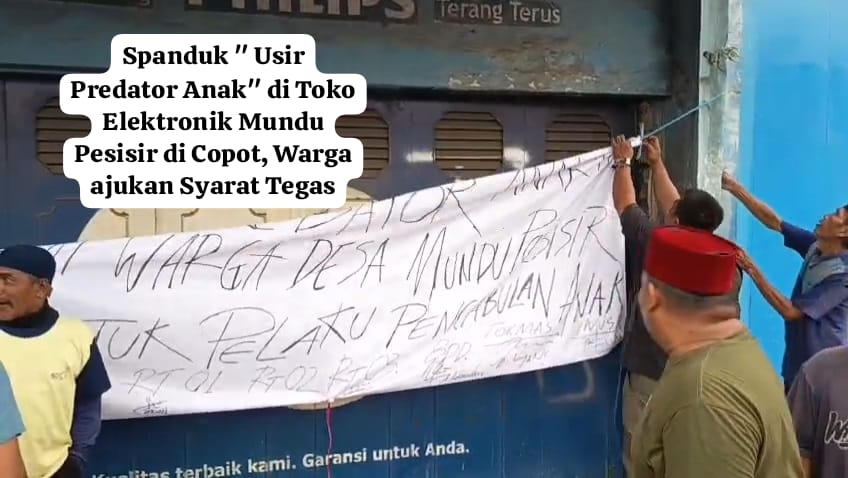 PHILIPS
Terang Terus
Spanduk " Usir
Predator Anak" di Toko
Elektronik Mundu
Pesisir di Copot, Warga
ajukan Syarat Tegas
ANAK
WARGA DESA MUNDU PESISIR
TUK PELAKU PENCABULAN ANAK
RT 01 RT 02 RT 03 BPD TOKMAS
Kualitas terbaik kami. Garansi untuk Anda.